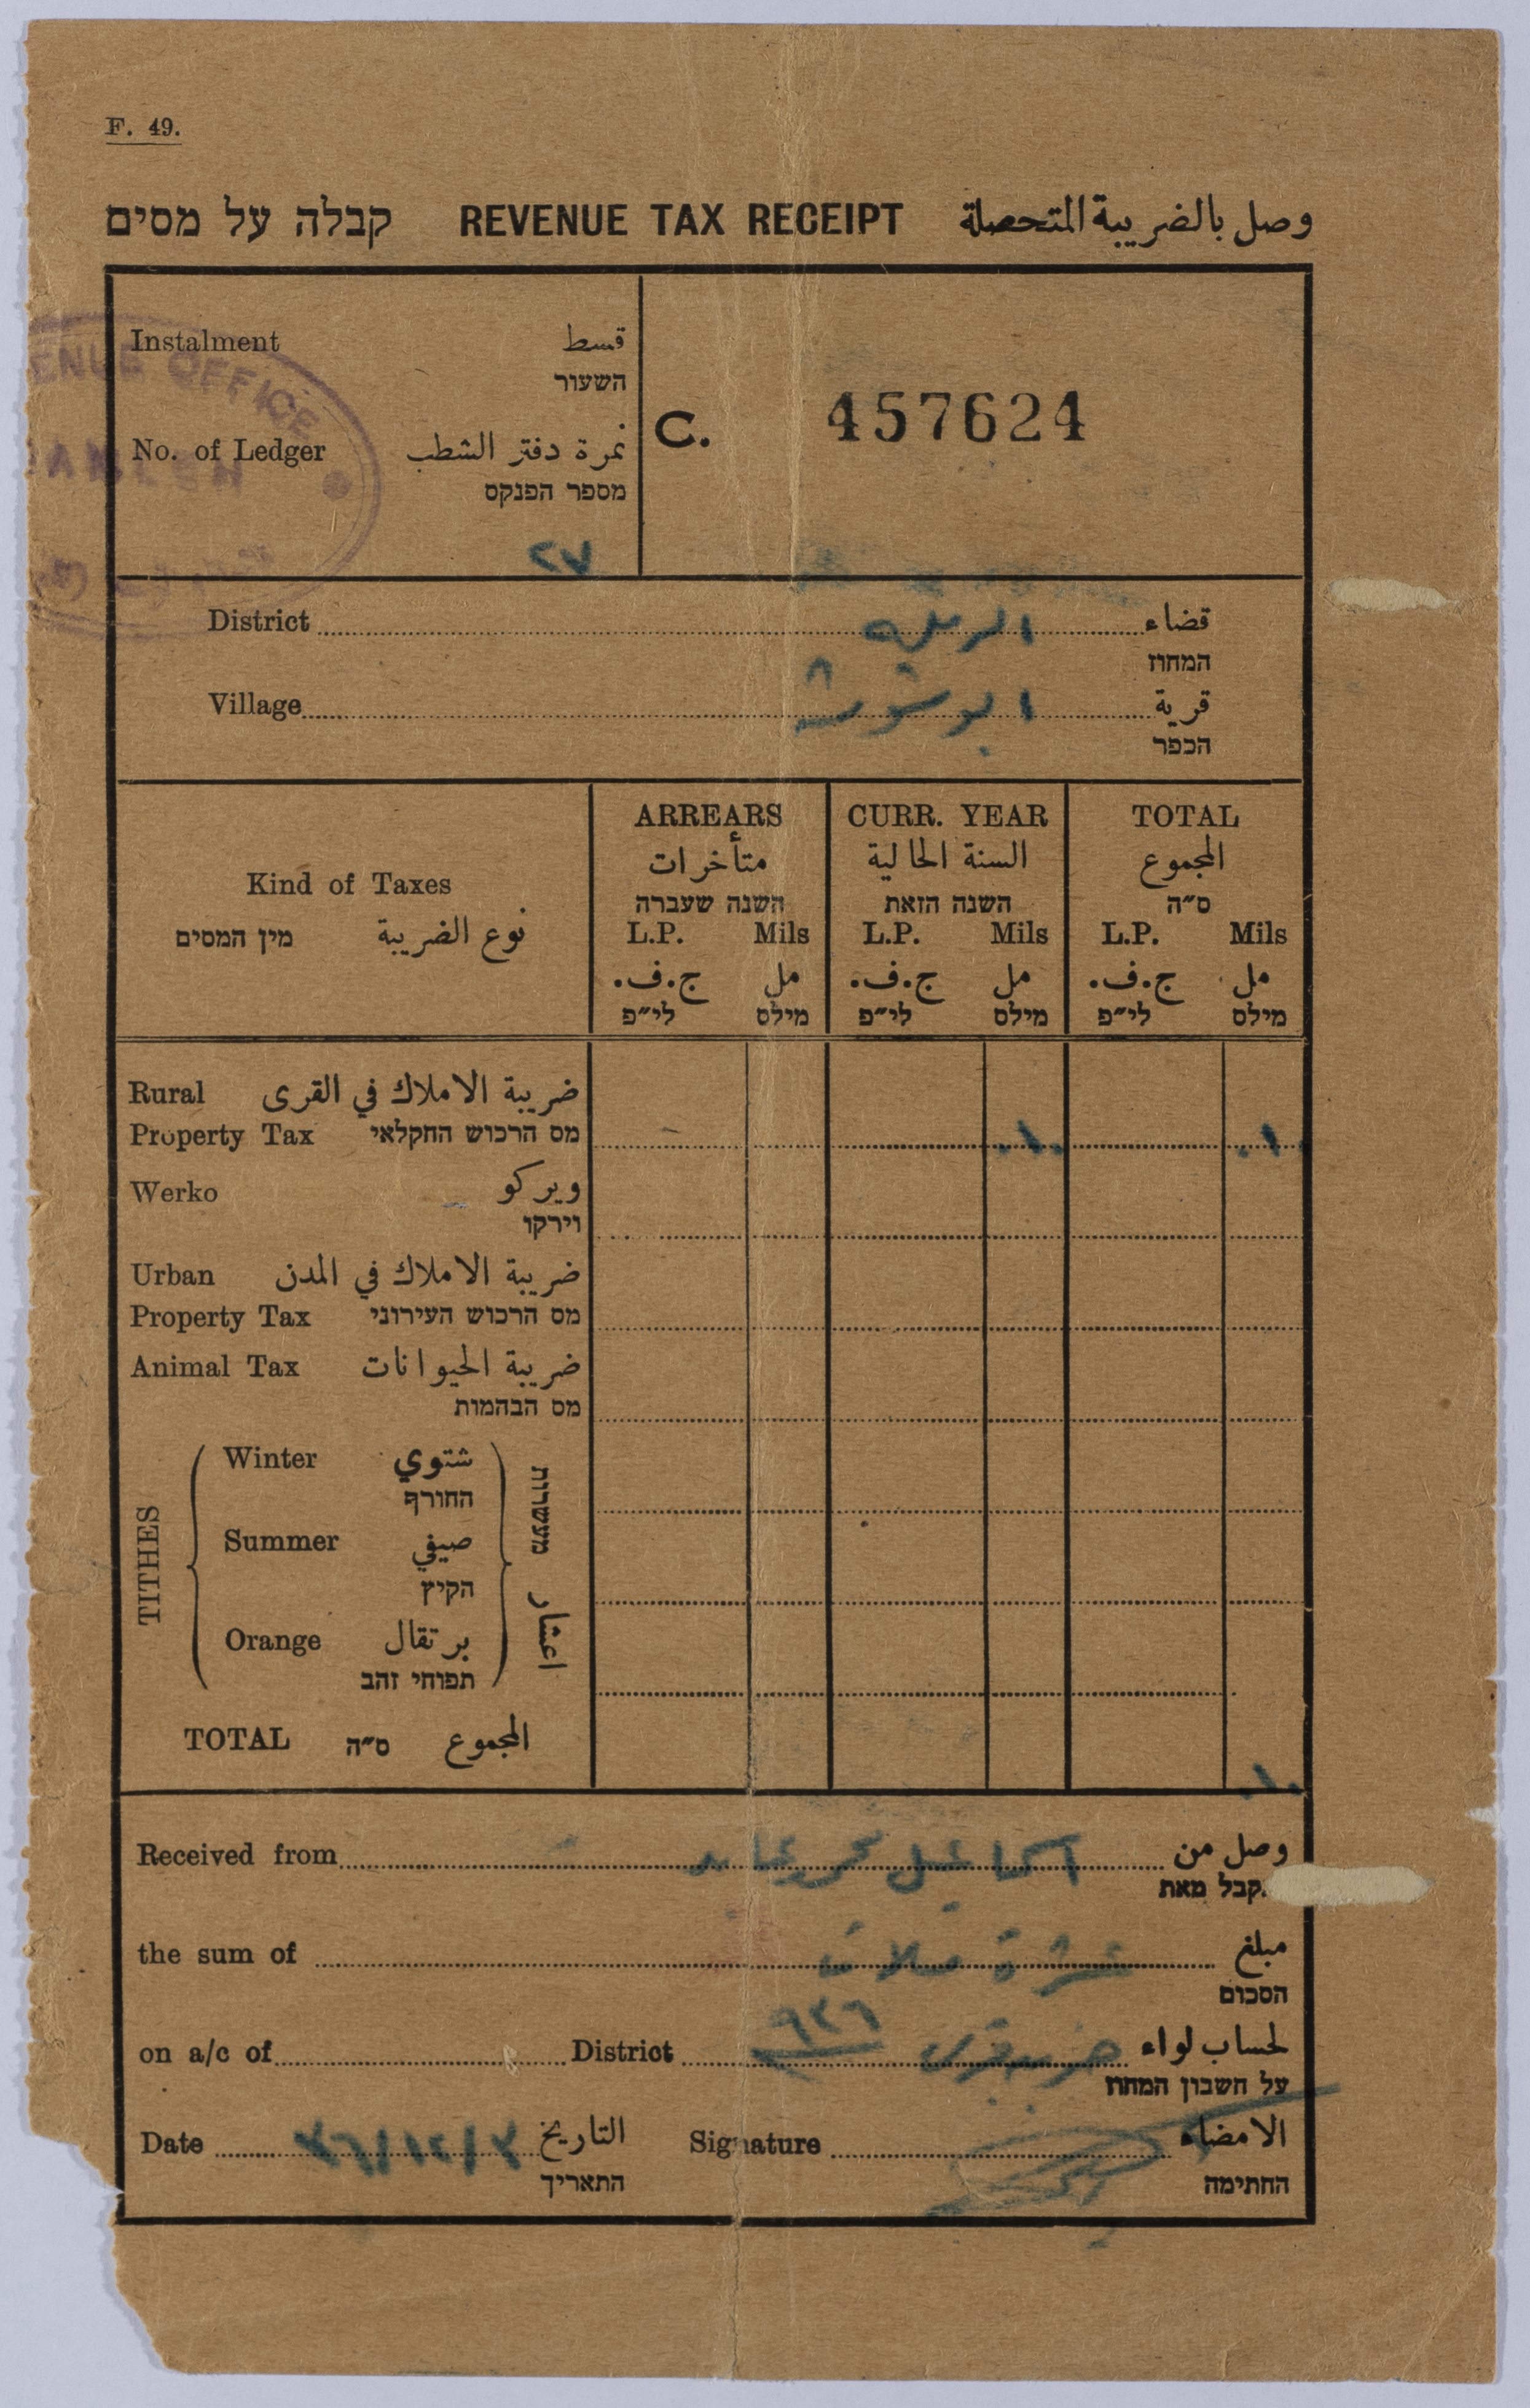 F. 49.
קבלה על מסים REVENUE TAX RECEIPT وصل بالضريبة المتحصلة
Instalment قسط
השעור
ENUE OFFICE
No. of Ledger نمرة دفتر الشطب
מספר הפנקס
٢٧
C. 457624
District الرملة قضاء
המחוז
Village ابو شوشة قرية
הכפר
Kind of Taxes
מין המסים نوع الضريبة
ARREARS CURR. YEAR TOTAL
متأخرات السنة الحالية المجموع
השנה שעברה השנה הזאת ס״ה
L.P. Mils L.P. Mils L.P. Mils
ج.ف. مل ج.ف. مل ج.ف. مل
לי״פ מילס לי״פ מילס לי״פ מילס
Rural ضريبة الاملاك في القرى
Property Tax מס הרכוש החקלאי ١٠ ١٠
Werko ويركو
וירקו
Urban ضريبة الاملاك في المدن
Property Tax מס הרכוש העירוני
Animal Tax ضريبة الحيوانات
מס הבהמות
TITHES מעשרות اعشار
Winter شتوي
החורף
Summer صيفي
הקיץ
Orange برتقال
תפוחי זהב
TOTAL ס״ה المجموع ١٠
Received from وصل من
קבל מאת
the sum of عشرة ملات مبلغ
הסכום
on a/c of District ٩٣٦ لحساب لواء
על חשבון המחוז
Date التاريخ Signature الامضاء
התאריך החתימה